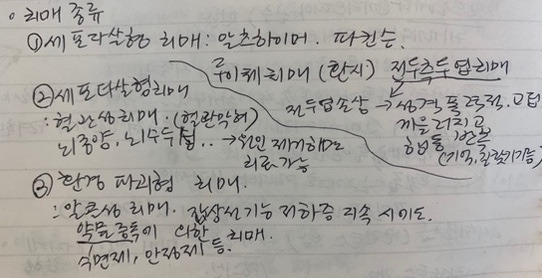 ◦ 치매 종류
① 세포자살형 치매 : 알츠하이머. 파킨슨.
루이체치매 (환시) 전두측두엽치매
전두엽손상 → 성격 폭력적. 고집
게을러지고
행동 반복
(기억, 감각기능)
② 세포타살형치매
: 혈관성치매. (혈관막혀)
뇌종양, 뇌수두 .. → 원인 제거하면
치료가능
③ 환경 파괴형 치매.
: 알콜성 치매. 갑상선기능 저하증 지속 시에도.
약물중독에 의한 치매.
수면제, 안정제 등.